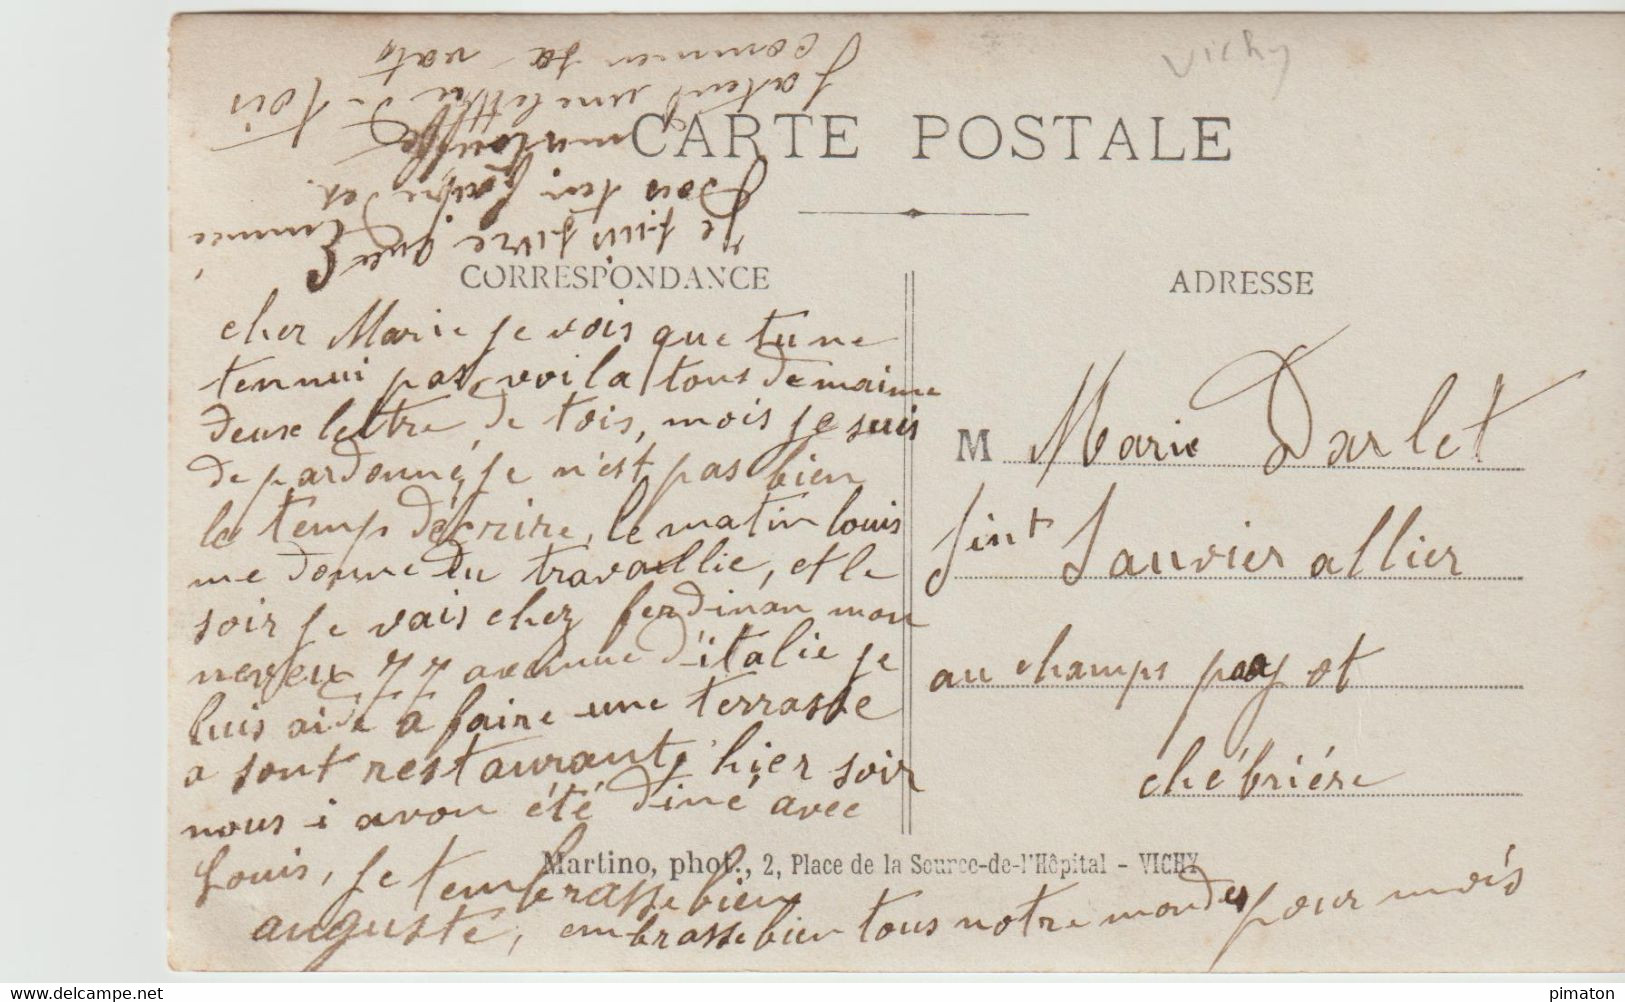 Vichy
CARTE POSTALE
CORRESPONDANCE
ADRESSE
cher Marie je vois que tu ne
tennui pas, voila tous demaime
deuse lettre de tois, mois je suis
de pardonné, je n'est pas bien
le temp décrire, le matin louis
me donne du travaillie, et le
soir je vais chez ferdinan mon
neveux 77 avenue d'italie je
luis aide a faire une terrasse
a sont restaurant, hier soir
nous i avon été diné avec
Louis, je tembrasse bien
auguste, embrasse bien tous notre mondes pour mois
M Marie Darlet
Sint Sauvier allier
au champs payot
chébriére
Martino, phot., 2, Place de la Source-de-l'Hôpital - VICHY
Je suis sure que
Dou ten
jatend une lettre de tois
commen sa vat
www.delcampe.net
pimaton